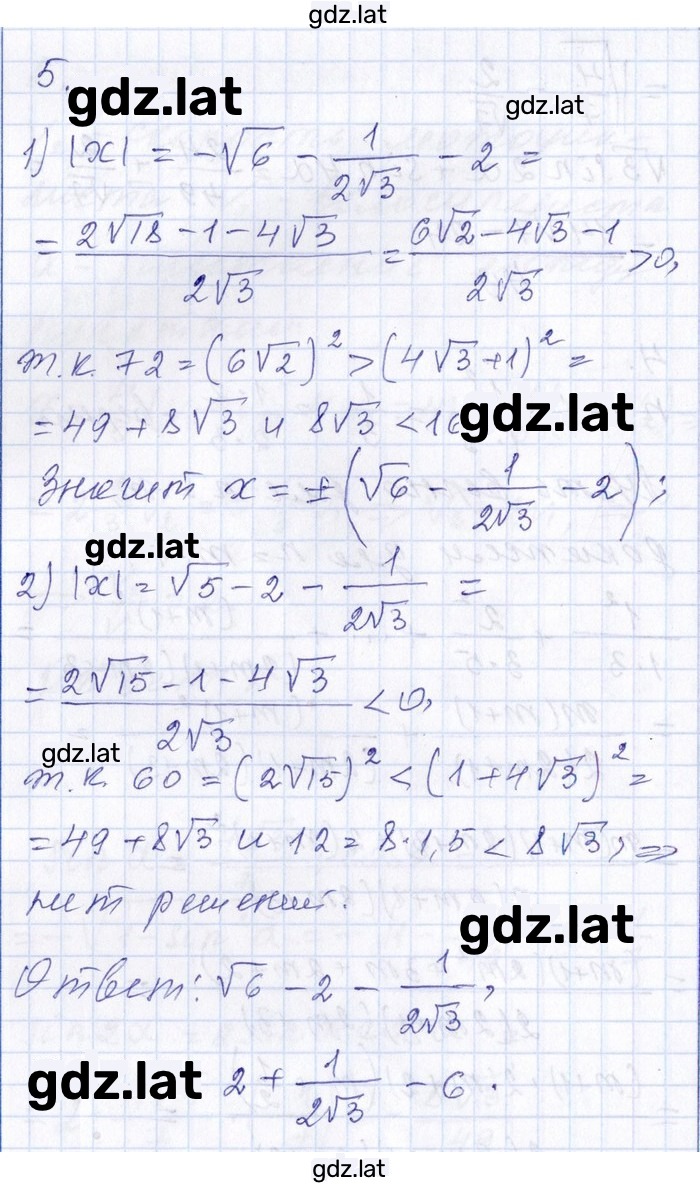 gdz.lat
5.
gdz.lat
gdz.lat
1) |x| = -√6 - 1/(2√3) - 2 =
= (2√18 - 1 - 4√3)/(2√3) = (6√2 - 4√3 - 1)/(2√3) > 0,
т.к. 72 = (6√2)² > (4√3 + 1)² =
= 49 + 8√3 и 8√3 < 16
gdz.lat
Значит x = ± (√6 - 1/(2√3) - 2);
gdz.lat
2) |x| = √5 - 2 - 1/(2√3) =
= (2√15 - 1 - 4√3)/(2√3) < 0,
gdz.lat
т.к. 60 = (2√15)² < (1 + 4√3)² =
= 49 + 8√3 и 12 = 8·1,5 < 8√3; =>
нет решений.
gdz.lat
Ответ: √6 - 2 - 1/(2√3);
gdz.lat
2 + 1/(2√3) - 6.
gdz.lat